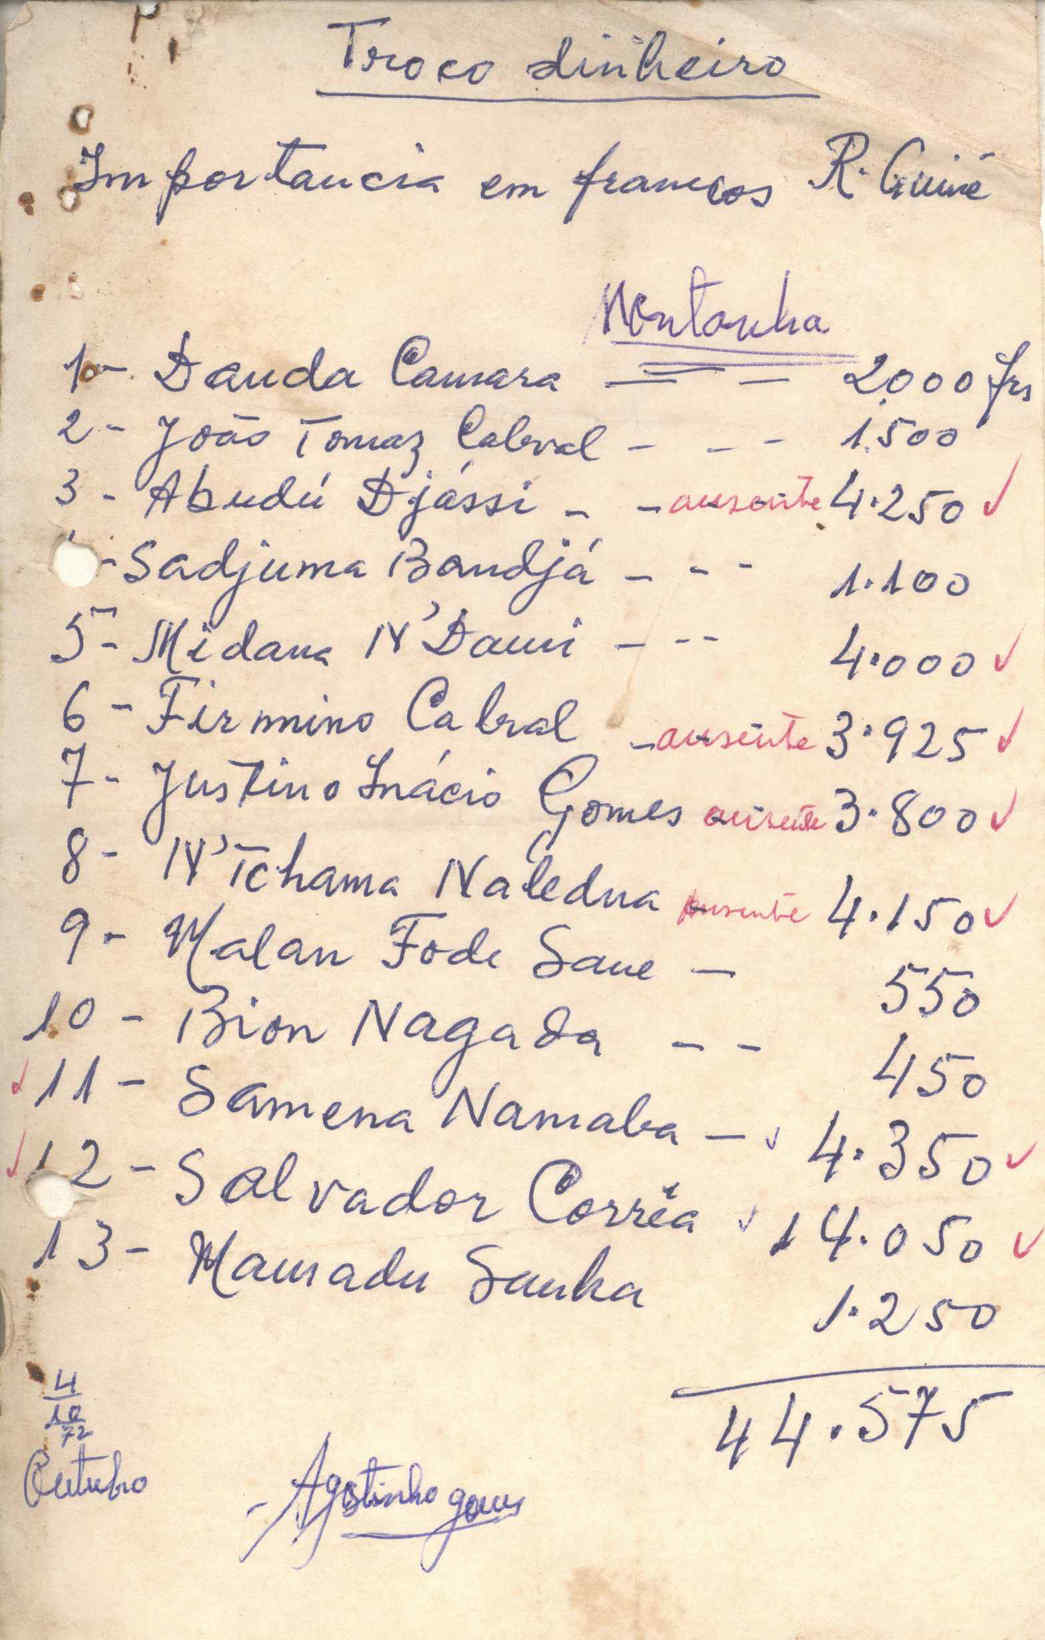 Troco dinheiro
Importancia em francos R. Guiné
Montanha
1- Dauda Camara — — 2.000 frs
2- João Tomaz Cabral - - - 1.500
3- Abudú Djássi - - ausente 4.250 ✓
- Sadjuma Bandjá - - - 1.100
5- Midana N'Dami - - - 4.000 ✓
6- Firmino Cabral - ausente 3.925 ✓
7- Justino Inácio Gomes ausente 3.800 ✓
8- N'Tchama Naledna ausente 4.150 ✓
9- Malan Fode Sane - 550
10- Bion Nagada - - 450
✓ 11- Samena Namaba - ✓ 4.350 ✓
✓ 12- Salvador Corrêa ✓ 14.050 ✓
13- Mamadu Sanha 1.250
44.575
4
10
72
Outubro
- Agostinho gomes